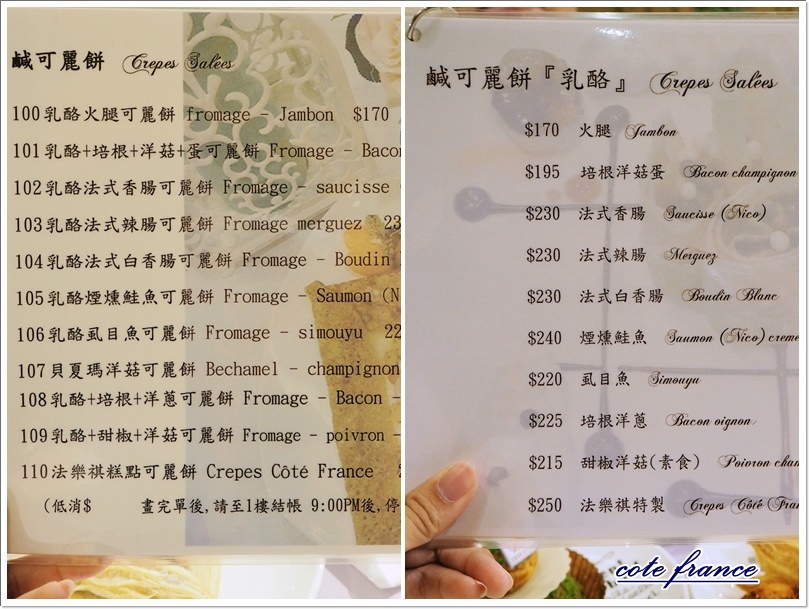 鹹可麗餅 Crepes Salées
100乳酪火腿可麗餅 fromage - Jambon $170
101乳酪+培根+洋菇+蛋可麗餅 Fromage - Baco
102乳酪法式香腸可麗餅 Fromage - saucisse
103乳酪法式辣腸可麗餅 Fromage merguez 23
104乳酪法式白香腸可麗餅 Fromage - Boudin
105乳酪煙燻鮭魚可麗餅 Fromage - Saumon (N
106乳酪虱目魚可麗餅 Fromage - simouyu 22
107貝夏瑪洋菇可麗餅 Bechamel - champignon
108乳酪+培根+洋蔥可麗餅 Fromage - Bacon -
109乳酪+甜椒+洋菇可麗餅 Fromage - poivron -
110法樂祺糕點可麗餅 Crepes Côté France 2
(低消$ 畫完單後,請至1樓結帳 9:00PM後,停
鹹可麗餅『乳酪』 Crepes Salées
$170 火腿 Jambon
$195 培根洋菇蛋 Bacon champignon
$230 法式香腸 Saucisse (Nico)
$230 法式辣腸 Merguez
$230 法式白香腸 Boudin Blanc
$240 煙燻鮭魚 Saumon (Nico) creme
$220 虱目魚 Simouyu
$225 培根洋蔥 Bacon oignon
$215 甜椒洋菇(素食) Poivron cham
$250 法樂祺特製 Crepes Côté (Fran
cote france